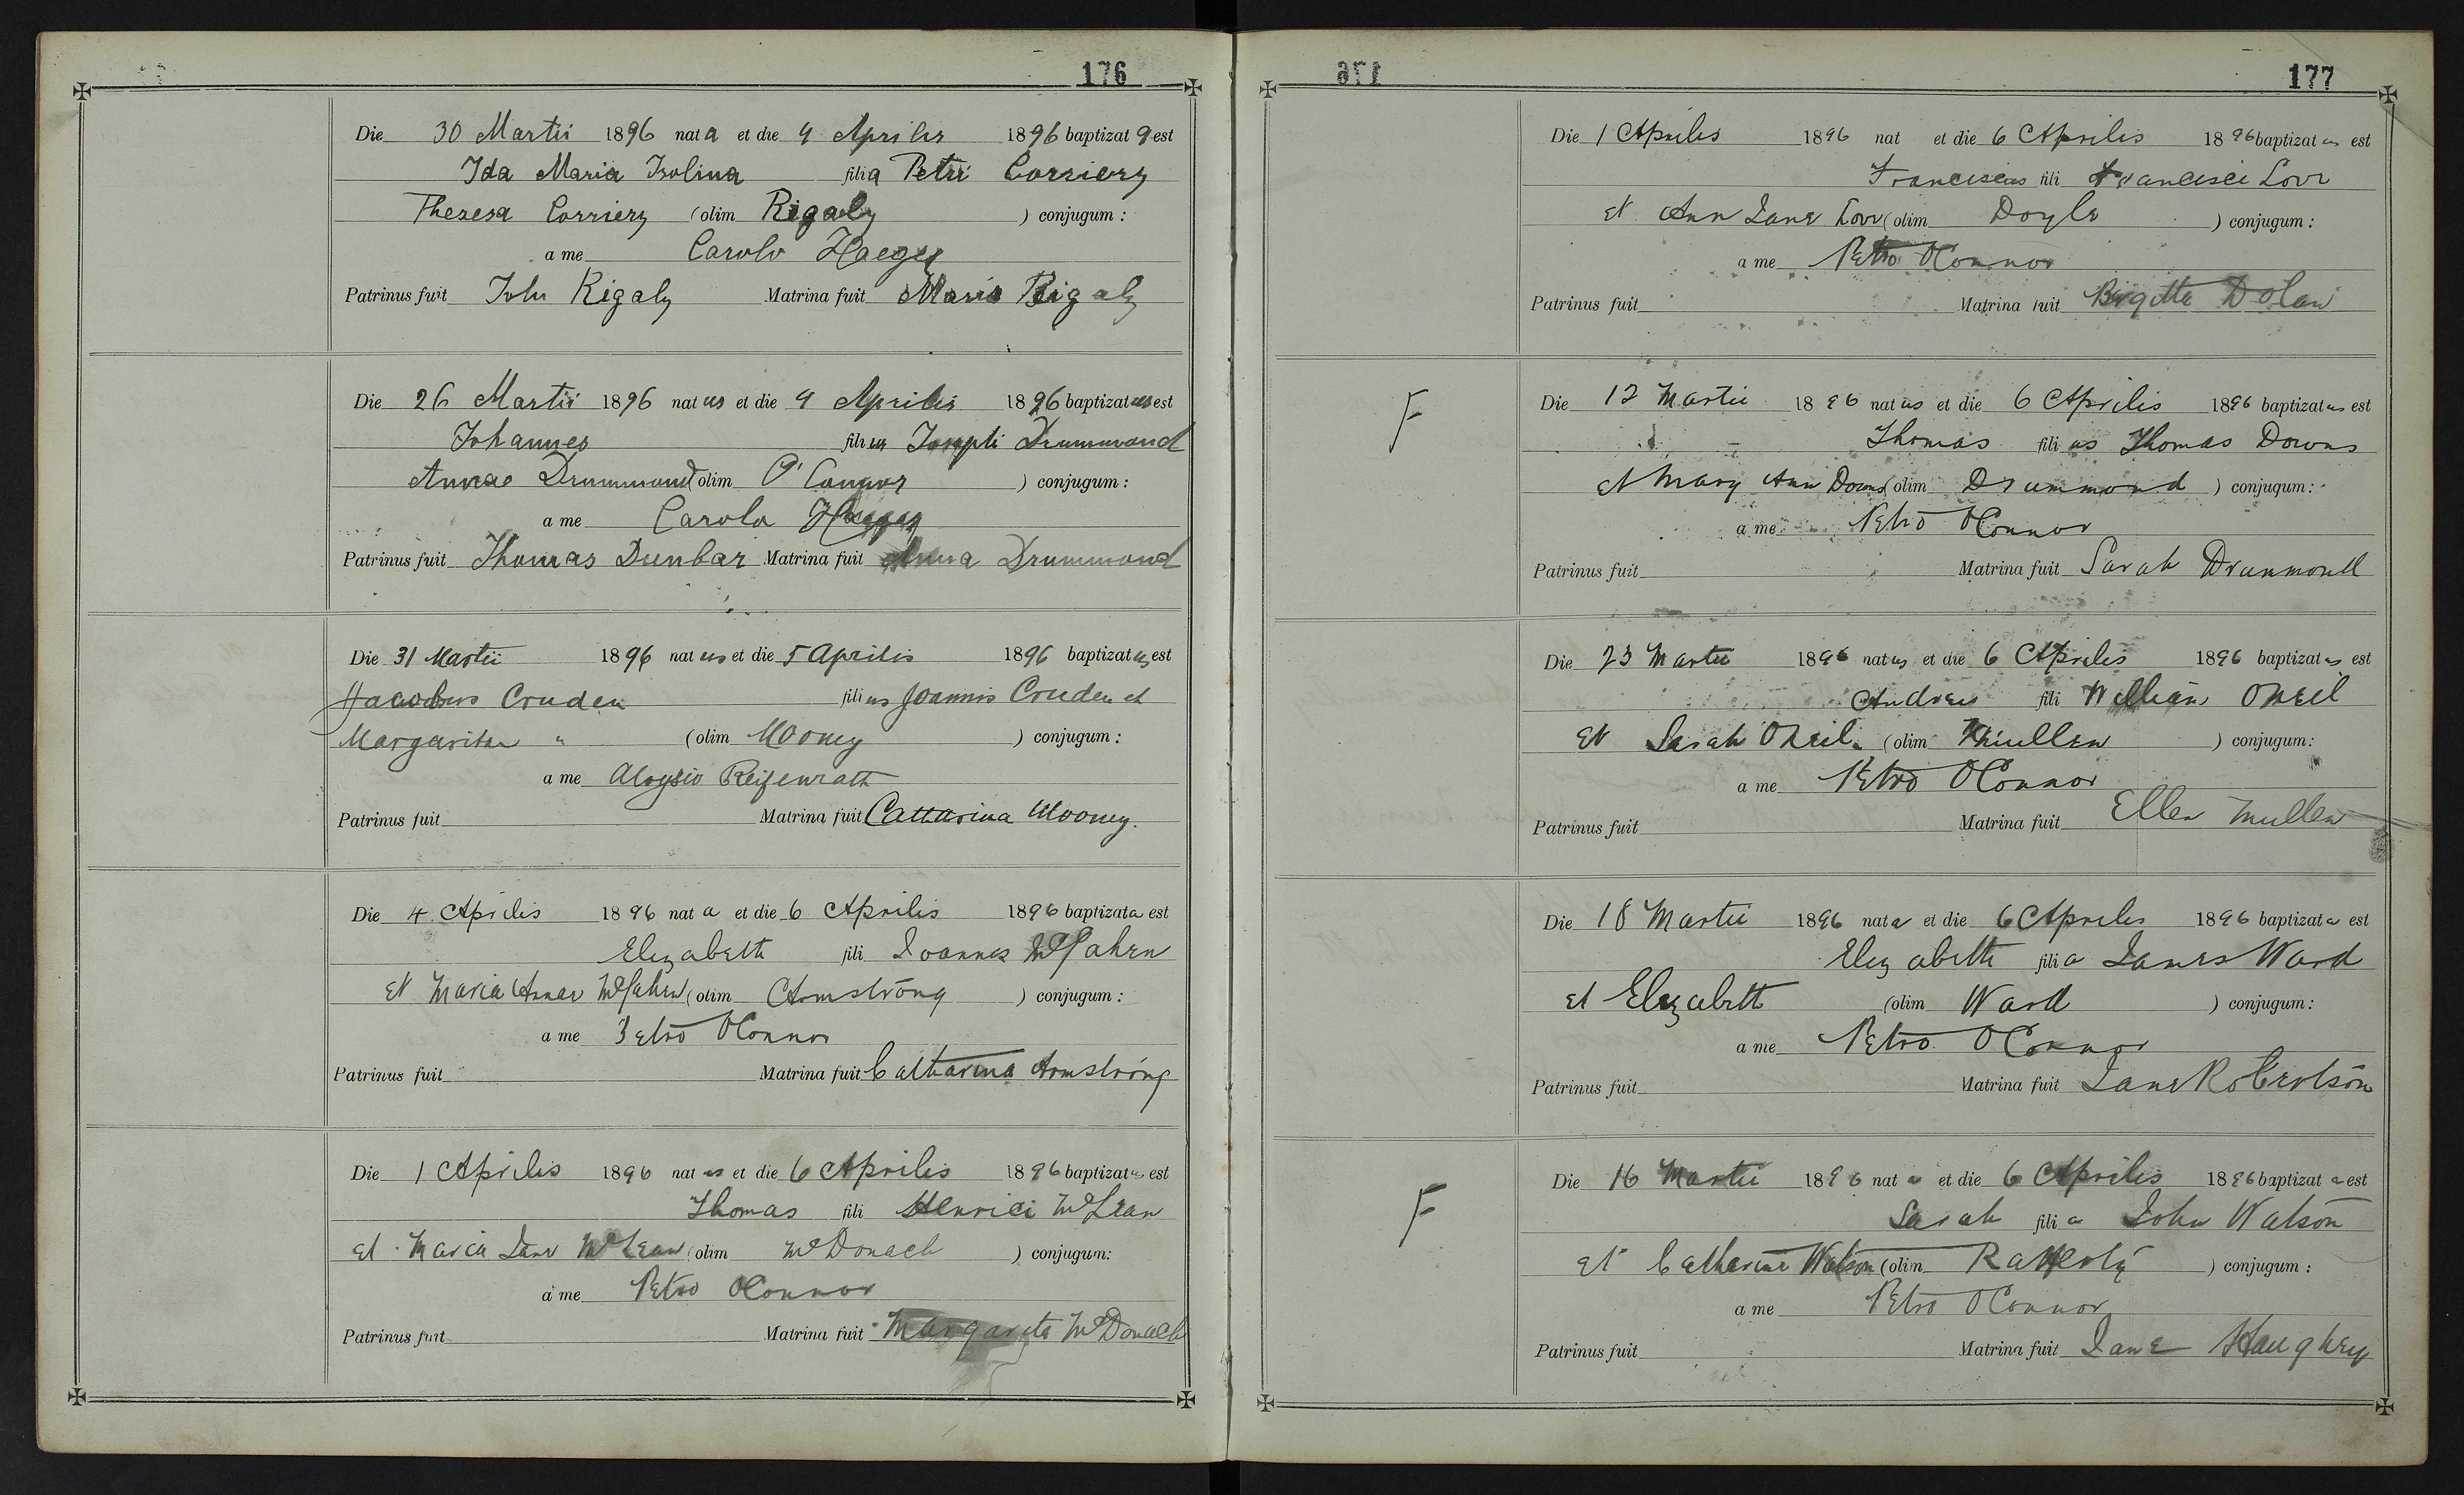 176
Die 30 Martii 1896 nat a et die 4 Aprilis 1896 baptizat a est
Ida Maria Isolina filia Petri Corriery
Theresa Corriery (olim Rigaly ) conjugum :
a me Carolo Haeger
Patrinus fuit John Rigaly Matrina fuit Maria Rigaly
Die 26 Martii 1896 nat us et die 4 Aprilis 1896 baptizat us est
Johannes filius Josephi Drummond
Annae Drummond (olim O'Connor ) conjugum :
a me Carolo Haeger
Patrinus fuit Thomas Dunbar Matrina fuit Anna Drummond
Die 31 Martii 1896 nat us et die 5 Aprilis 1896 baptizat us est
Jacobus Cruden filius Joannis Cruden et
Margarita " (olim Mooney ) conjugum :
a me Aloysio Reifenrath
Patrinus fuit Matrina fuit Catharina Mooney.
Die 4 Aprilis 1896 nat a et die 6 Aprilis 1896 baptizata est
Elizabeth fili Joannes
et Maria Annae (olim Armstrong ) conjugum :
a me Petro OConnor
Patrinus fuit Matrina fuit Catharina Armstrong
Die 1 Aprilis 1896 nat us et die 6 Aprilis 1896 baptizatus est
Thomas fili Henrici McLean
et Maria Jane McLean (olim McDonach ) conjugum:
a me Petro OConnor
Patrinus fuit Matrina fuit Margareta McDonach
176
177
Die 1 Aprilis 1896 nat et die 6 Aprilis 1896 baptizat us est
Franciscus fili Francisci
et Ann Jane (olim Doyle ) conjugum :
a me Petro OConnor
Patrinus fuit Matrina fuit Birgitta Dolan
F
Die 12 Martii 1896 nat us et die 6 Aprilis 1896 baptizat us est
Thomas fili us Thomas Downs
et Mary Ann Downs (olim Drummond ) conjugum:
a me Petro OConnor
Patrinus fuit Matrina fuit Sarah Drummond
Die 23 Martii 1896 natus et die 6 Aprilis 1896 baptizat us est
Andrew fili William ONeil
et Sarah ONeil (olim Mullen ) conjugum:
a me Petro OConnor
Patrinus fuit Matrina fuit Ellen Mullen
Die 18 Martii 1896 nata et die 6 Aprilis 1896 baptizata est
Elizabeth filia James Ward
et Elizabeth (olim Ward ) conjugum :
a me Petro OConnor
Patrinus fuit Matrina fuit Jane Robertson
F
Die 16 Martii 1896 nat a et die 6 Aprilis 1896 baptizat a est
Sarah fili a John Watson
et Catharine Watson (olim Rafferty ) conjugum :
a me Petro OConnor
Patrinus fuit Matrina fuit Jane Haughey